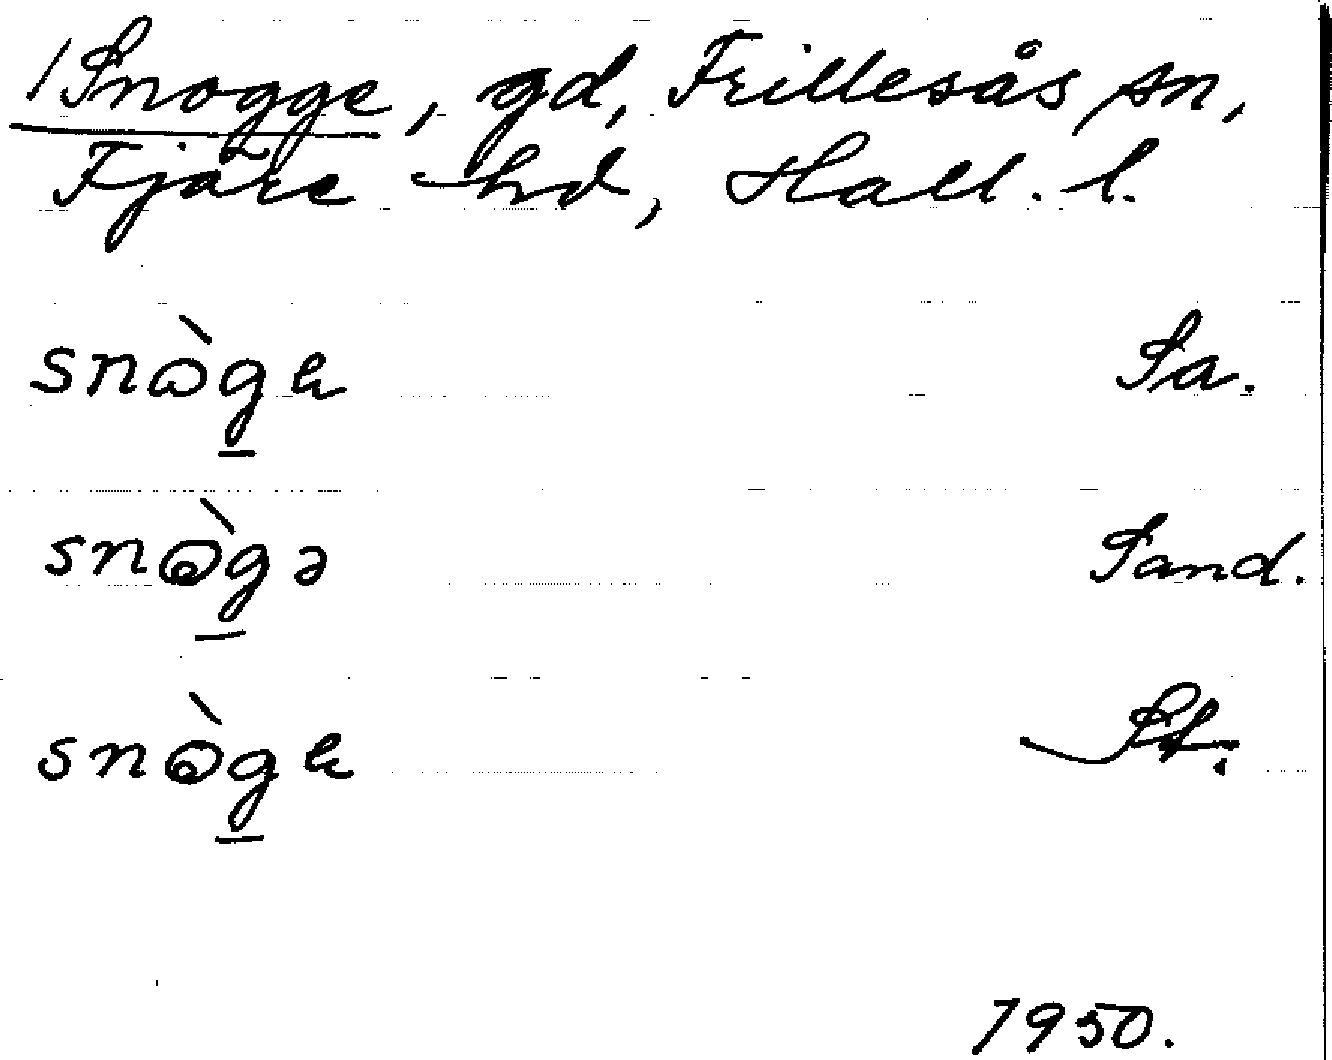 /Snogge, gd, Frillesås sn,
Fjäre hd, Hall. l.
snòg̲e Sa.
snòg̲ə Sand.
snòg̲e St.
1950.